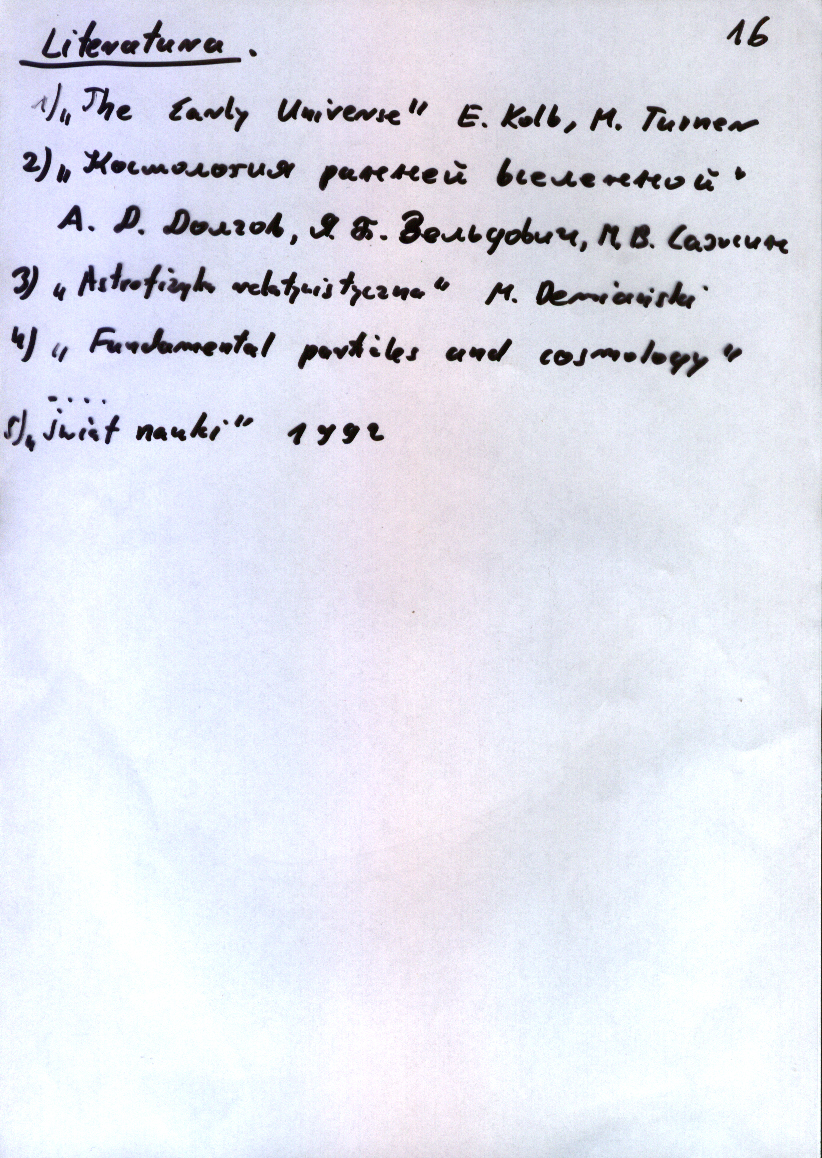 Literatura. 16
1) „The Early Universe" E. Kolb, M. Turner
2) „Космология ранней вселенной"
А. Д. Долгов, Я. Б. Зельдович, М. В. Сажин
3) „Astrofizyka relatywistyczna" M. Demiański
4) „Fundamental particles and cosmology"
.....
5) „Świat nauki" 1992